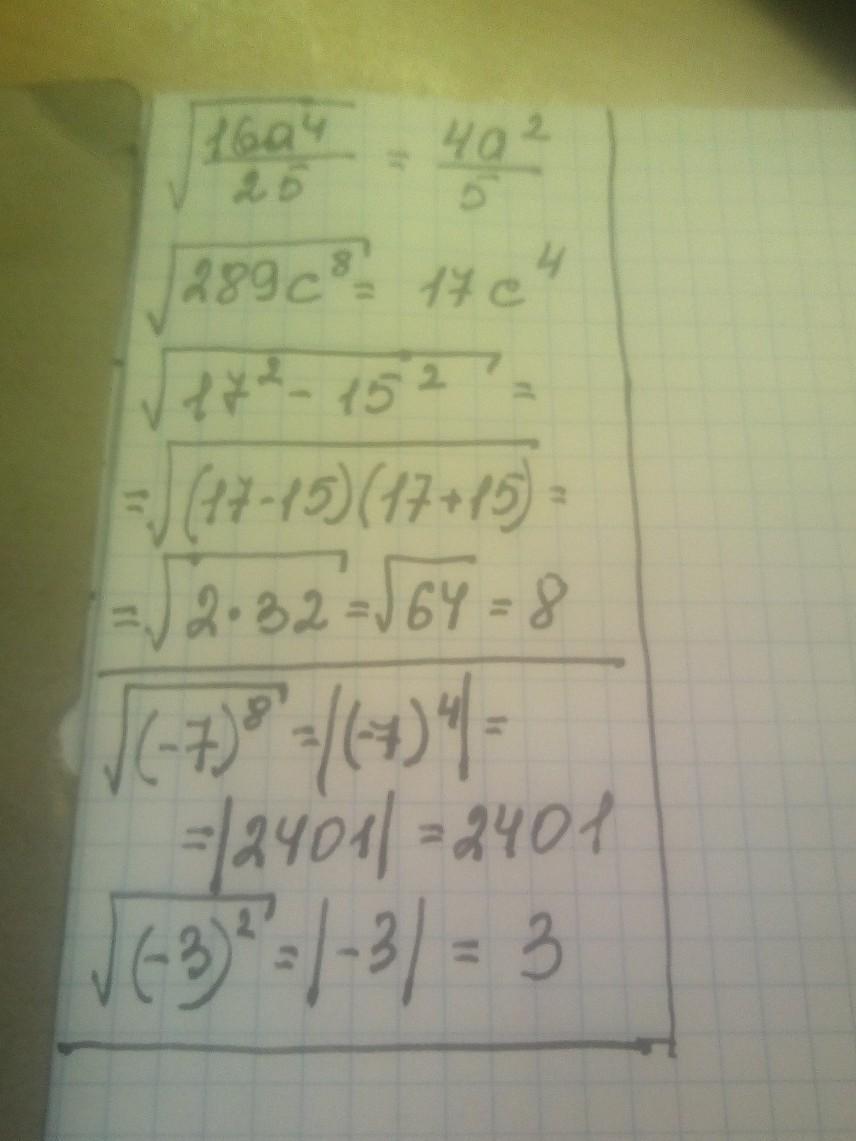 √(16a⁴/25) = 4a²/5
√(289c⁸) = 17c⁴
√(17² - 15²) =
= √((17-15)(17+15)) =
= √(2·32) = √64 = 8
√((-7)⁸) = |(-7)⁴| =
= |2401| = 2401
√((-3)²) = |-3| = 3